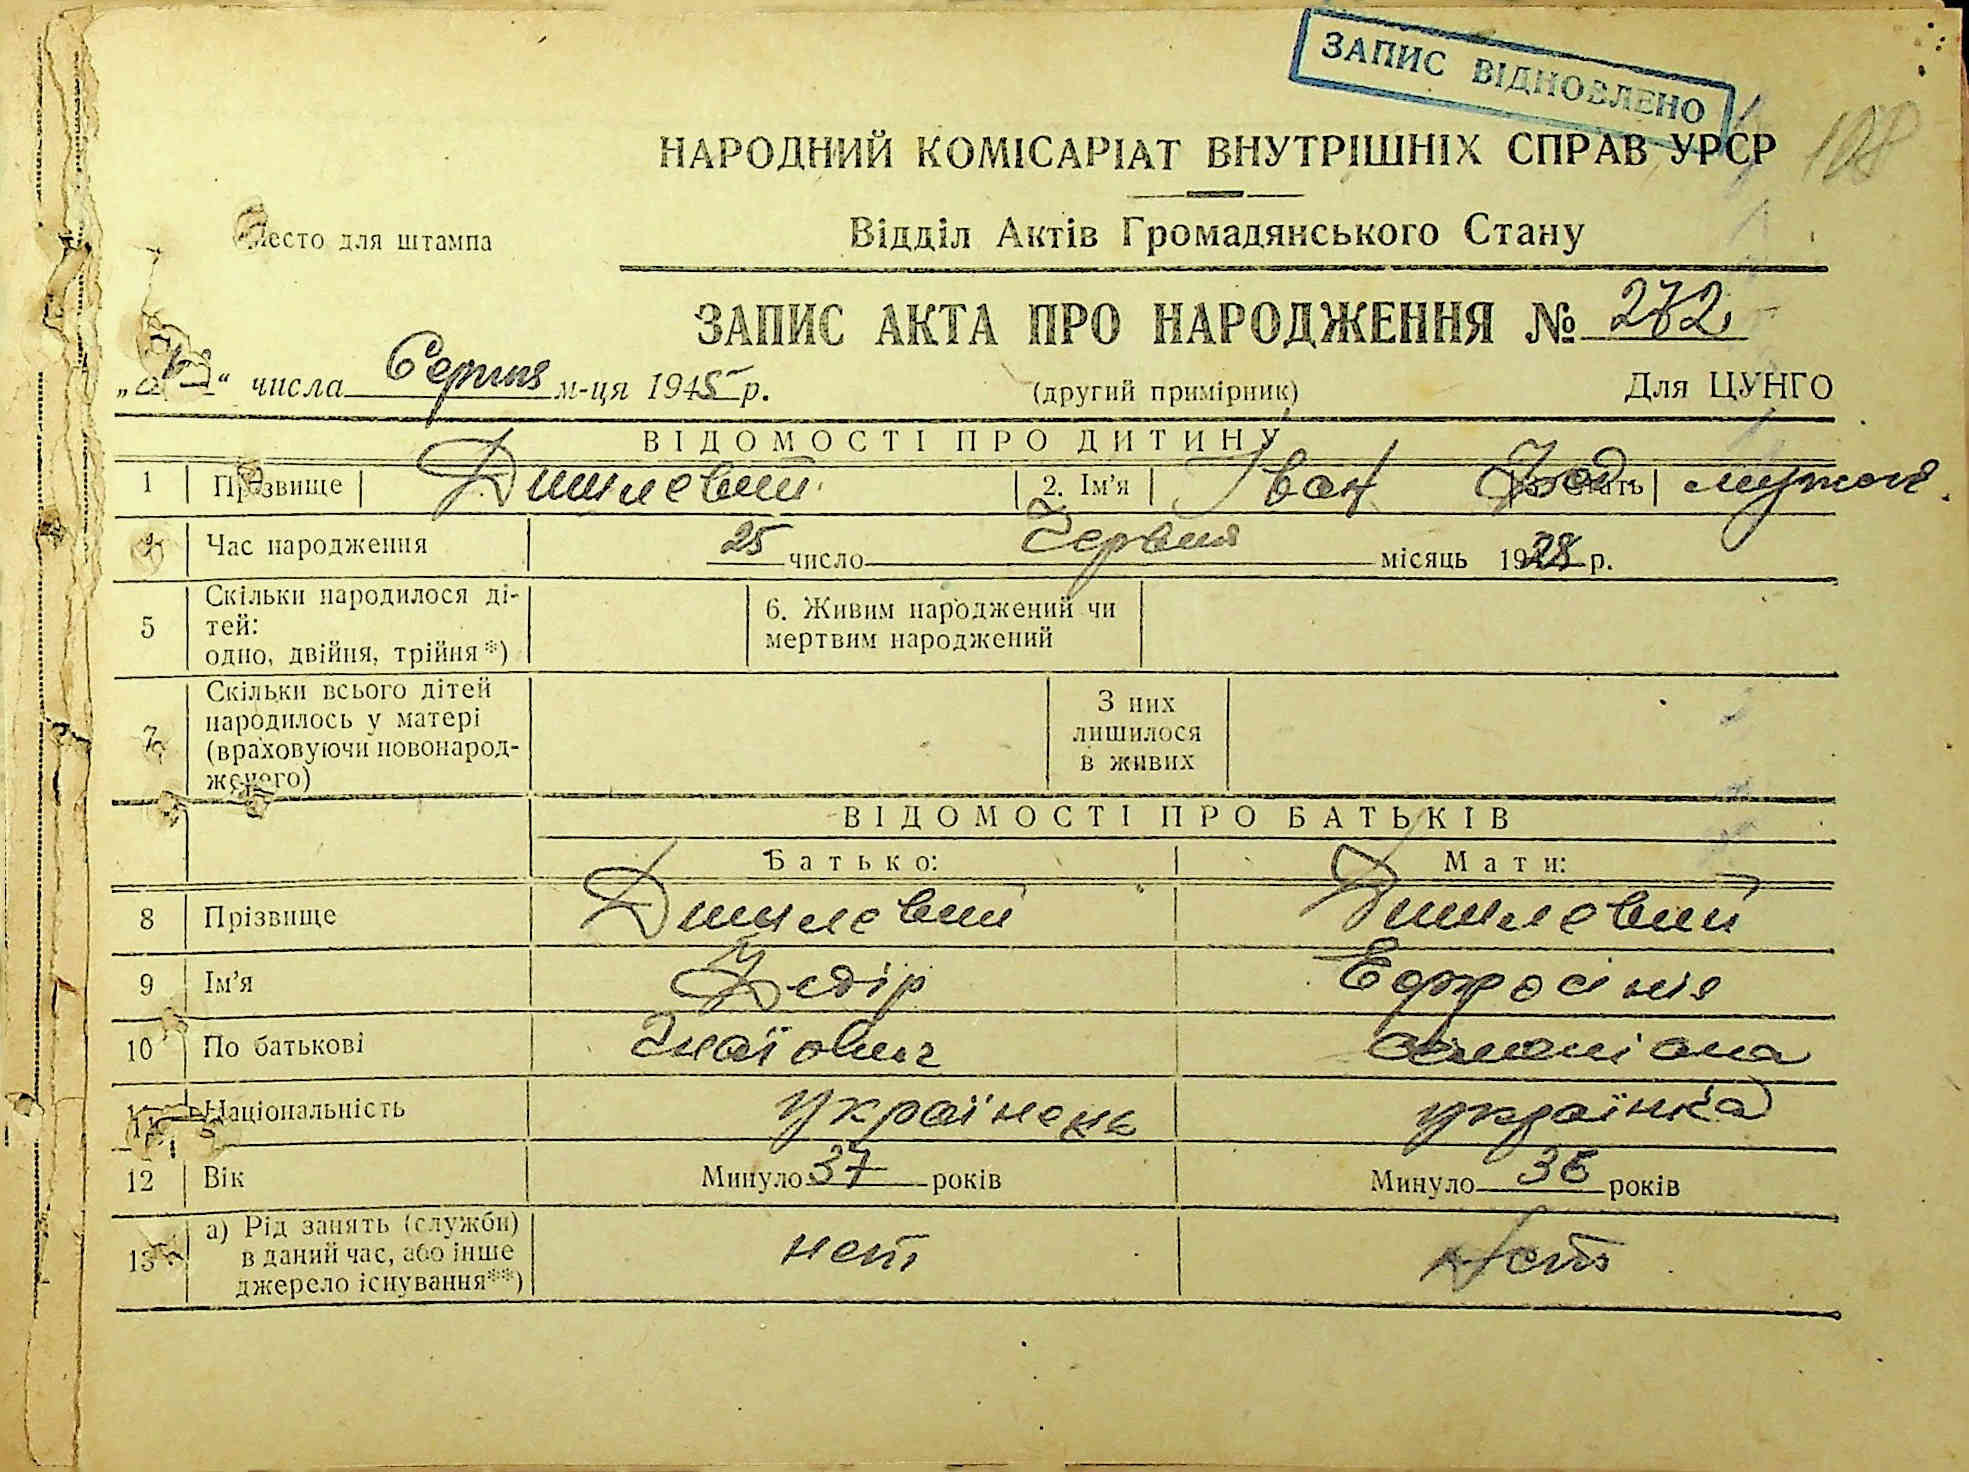 ЗАПИС ВІДНОВЛЕНО
108
НАРОДНИЙ КОМІСАРІАТ ВНУТРІШНІХ СПРАВ УРСР
Место для штампа
Відділ Актів Громадянського Стану
ЗАПИС АКТА ПРО НАРОДЖЕННЯ № 272
" " числа Серпня м-ця 1945 р. (другий примірник) Для ЦУНГО
ВІДОМОСТІ ПРО ДИТИНУ
1 Прізвище Дишлевий 2. Ім'я Іван Фед 3. Стать мужчи
4 Час народження 25 число Червня місяць 1928 р.
5 Скільки народилося ді-
тей:
одно, двійня, трійня*)
6. Живим народжений чи
мертвим народжений
7 Скільки всього дітей
народилось у матері
(враховуючи новонарод-
женого)
З них
лишилося
в живих
ВІДОМОСТІ ПРО БАТЬКІВ
Батько: Мати:
8 Прізвище Дишлевий Дишлевий
9 Ім'я Федір Ефросінія
10 По батькові
11 Національність Українець українка
12 Вік Минуло 37 років Минуло 36 років
13 а) Рід занять (служби)
в даний час, або інше
джерело існування**)
нет Нет